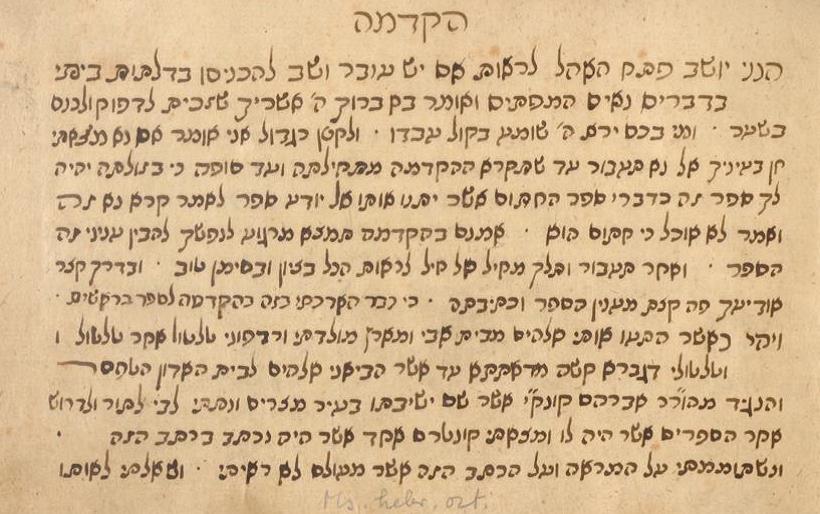 הקדמה
הנני יושב פתח האהל לראות אם יש עובר ושב להכניסן בדלתות ביתי
בדברים נאים המפתים ואומר בא ברוך ה' אשריך שזכית לדפוק ולכנס
בשער · ומי בכם ירא ה' שומע בקול עבדו · ולקטן כגדול אני אומר אם נא מצאתי
חן בעיניך אל נא תעבור עד שתקרא ההקדמה מתחילתה ועד סופה כי בזולתה יהיה
לך ספר זה כדברי ספר החתום אשר יתנו אותו אל יודע ספר לאמר קרא נא זה
ואמר לא אוכל כי חתום הוא · אמנם בהקדמה תמצא מרגוע לנפשך להבין עניני זה
הספר · ואחר תעבור ותלך מחיל אל חיל לראות הכל בציון ובסימן טוב · ובדרך קצר
אודיעך פה קצת מענין הספר וכתיבתה · כי כבר הארכתי בזה בהקדמה לספר בראשית ·
ויהי כאשר התעו אותי אלהים מבית אבי ומארץ מולדתי ורדפוני טלטול אחר טלטול ו
וטלטולי דגברא קשה מדאתתא עד אשר הביאני אלהים לבית האדון הטפסר
והנגיד מהור"ר אברהם קונקי אשר שם ישיבתו בעיר מצרים ונתתי לבי לתור ולדרוש
אחר הספרים אשר היה לו ומצאתי קונטרס אחד אשר היה נכתב בכתב הזה ·
ונשתוממתי על המראה ועל הכתב הזה אשר מעולם לא ראיתי · ושאלתי לאותו
Ms. hebr. oct.